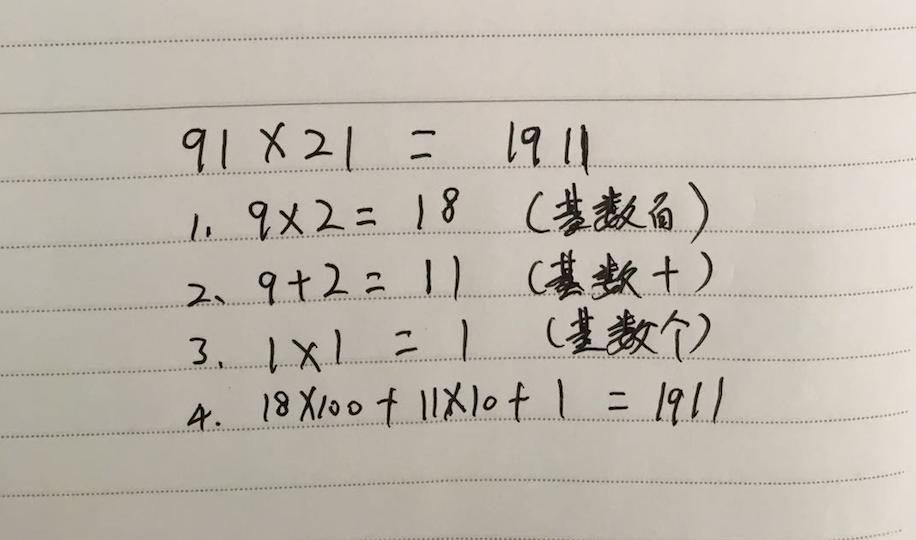 91×21 = 1911
1. 9×2= 18 (基数百)
2、9+2= 11 (基数十)
3. 1×1 = 1 (基数个)
4. 18×100+11×10+1 = 1911